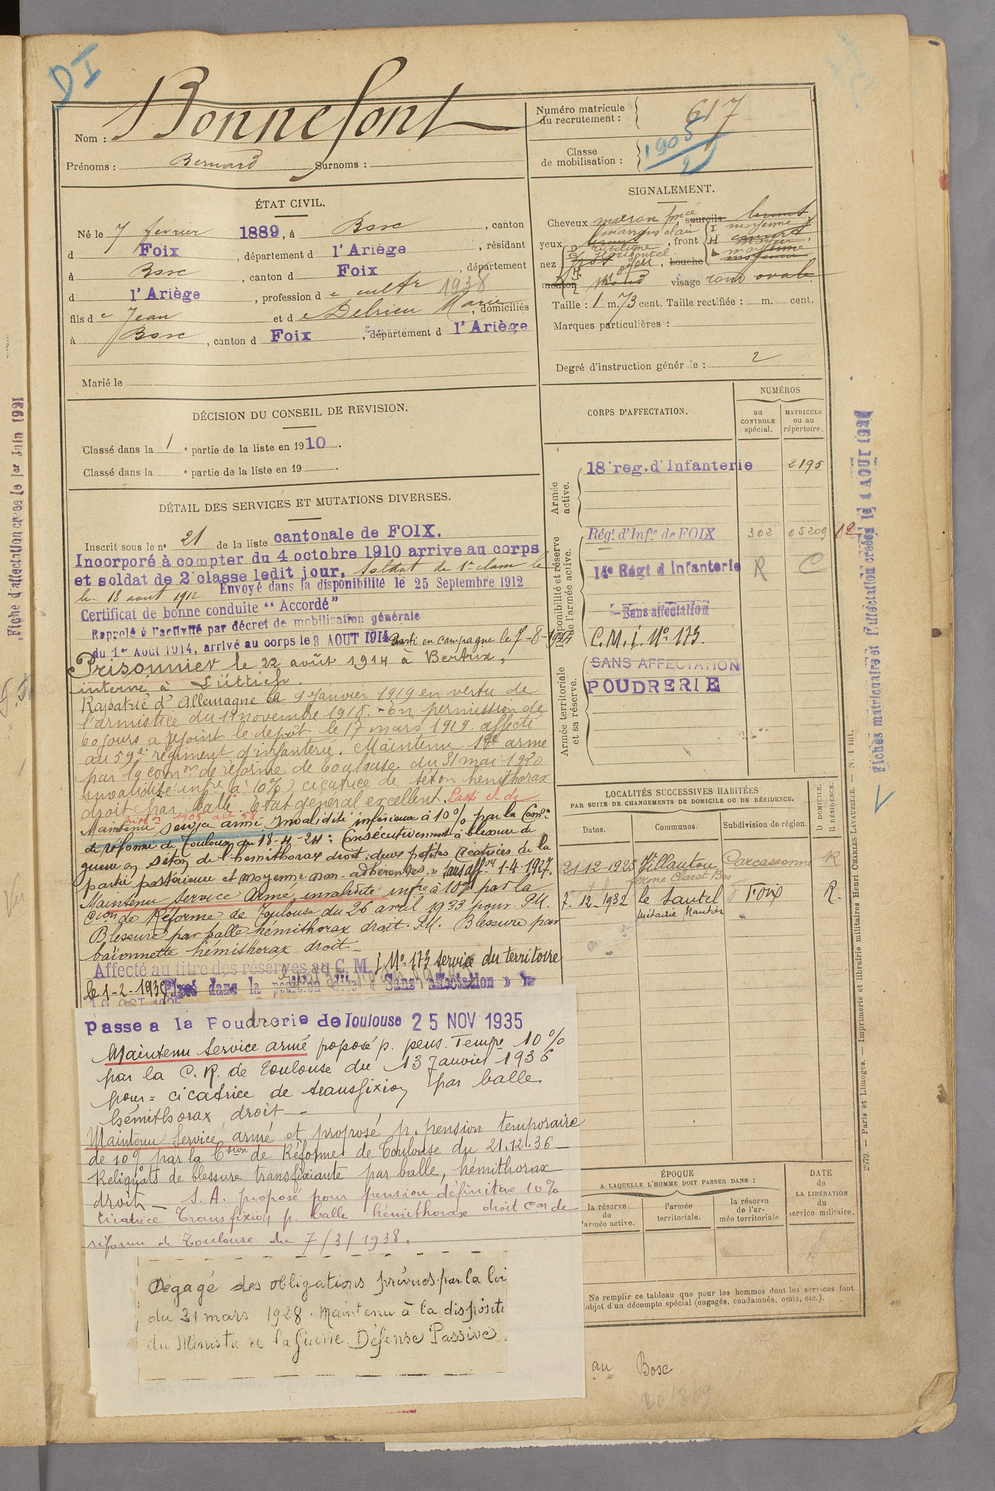 DI
Nom : Bonnefont
Prénoms : Bernard Surnoms :
Numéro matricule du recrutement : 617
Classe de mobilisation : 1905/2
ÉTAT CIVIL.
Né le 7 février 1889, à Bosc, canton
d Foix, département d l'Ariège, résidant
à Bosc, canton d Foix, département
d l'Ariège, profession d e cultr 1938
fils d e Jean et d e Delrieu Marie, domiciliés
à Bosc, canton d Foix, département d l'Ariège
Marié le
DÉCISION DU CONSEIL DE REVISION.
Classé dans la 1e partie de la liste en 1910.
Classé dans la e partie de la liste en 19
DÉTAIL DES SERVICES ET MUTATIONS DIVERSES.
Inscrit sous le n° 21 de la liste cantonale de FOIX.
Incorporé à compter du 4 octobre 1910 arrive au corps
et soldat de 2e classe ledit jour. Soldat de 1e classe le
le 18 aout 1912 Envoyé dans la disponibilité le 25 Septembre 1912
Certificat de bonne conduite "Accordé"
Rappelé à l'activité par décret de mobilisation générale
du 1er Août 1914, arrivé au corps le 3 AOUT 1914 Parti en campagne le 7-8-1914
Prisonnier le 22 août 1914 à Bertrix,
interné à Lüttich.
Rapatrié d'Allemagne le 9 Janvier 1919 en vertu de
l'armistice du 11 novembre 1918. - En permission de
60 jours a rejoint le dépôt le 17 mars 1919 affecté
au 59e régiment d'infanterie. Maintenu Sce armé
par la comon de réforme de Toulouse du 31 mai 1920
invalidité infre à 10% cicatrice de séton hémithorax
droit par balle. Etat général excellent. Passé cl. de
Maintenu service armé invalidité inférieure à 10% par la Comon
de réforme de Toulouse du 18-4-24: Consécutivement à blessure de
guerre séton de l'hémithorax droit, deux petites cicatrices de la
partie postérieure et moyenne non-adhérentes. Sans affon 1-4-1927.
Maintenu Service Armé, invalidité infre à 10% par la
Cion de Réforme de Toulouse du 26 avril 1933 pour: P.M.
Blessure par balle hémithorax droit. P.M. Blessure par
baïonnette hémithorax droit.
Affecté au titre des réserves au C. M. I N° 173 service du territoire
le 1-2-193 Placé dans la position dite « Sans affectation » le
Passe a la Poudrerie de Toulouse 25 NOV 1935
Maintenu Service armé proposé p. pens. Tempre 10%
par la C.R. de Toulouse du 13 Janvier 1936
pour = cicatrice de transfixion par balle
hémithorax droit -
Maintenu Service armé et proposé p. pension temporaire
de 10% par la Csion de Réforme de Toulouse du 21.12.36 -
Reliquats de blessure transfixiante par balle, hémithorax
droit - S. A. proposé pour pension définitive 10%
cicatrice transfixion p. balle hémithorax droit Con de
réforme de Toulouse du 7/3/1938.
Dégagé des obligations prévues par la loi
du 31 mars 1928. Maintenu à la dispositi
du Ministre de la Guerre Défense Passive.
SIGNALEMENT.
Cheveux marron foncé sourcils
yeux marrons clair, front moyenne
nez rectiligne horizontal bouche
menton rond visage rond ovale
Taille : 1 m. 73 cent. Taille rectifiée : m. cent.
Marques particulières :
Degré d'instruction générale : 2
CORPS D'AFFECTATION.
NUMÉROS
au CONTROLE spécial.
MATRICULE ou au répertoire.
Armée active.
18e reg. d'Infanterie 2195
Disponibilité et réserve de l'armée active.
Régt. d'Infie de FOIX 302 05209 12
14e Régt d'Infanterie R C
Sans affectation
C.M.I. N° 173.
Armée territoriale et sa réserve.
SANS AFFECTATION
POUDRERIE
LOCALITÉS SUCCESSIVES HABITÉES
PAR SUITE DE CHANGEMENTS DE DOMICILE OU DE RÉSIDENCE.
Dates. Communes. Subdivision de région. D DOMICILE. R RÉSIDENCE.
21-12-1925 Villautou Carcassonne R
7-12-1932 le Sautel Foix R.
ÉPOQUE
A LAQUELLE L'HOMME DOIT PASSER DANS :
la réserve de l'armée active.
l'armée territoriale.
la réserve de l'armée territoriale.
DATE de LA LIBÉRATION du service militaire.
Ne remplir ce tableau que pour les hommes dont les services font
objet d'un décompte spécial (engagés, condamnés, omis, etc.).
au Bosc
Fiche d'affectation créée le 1er Juin 1921
Paris et Limoges. — Imprimerie et librairie militaires Henri CHARLES-LAVAUZELLE. — N. 1 int.